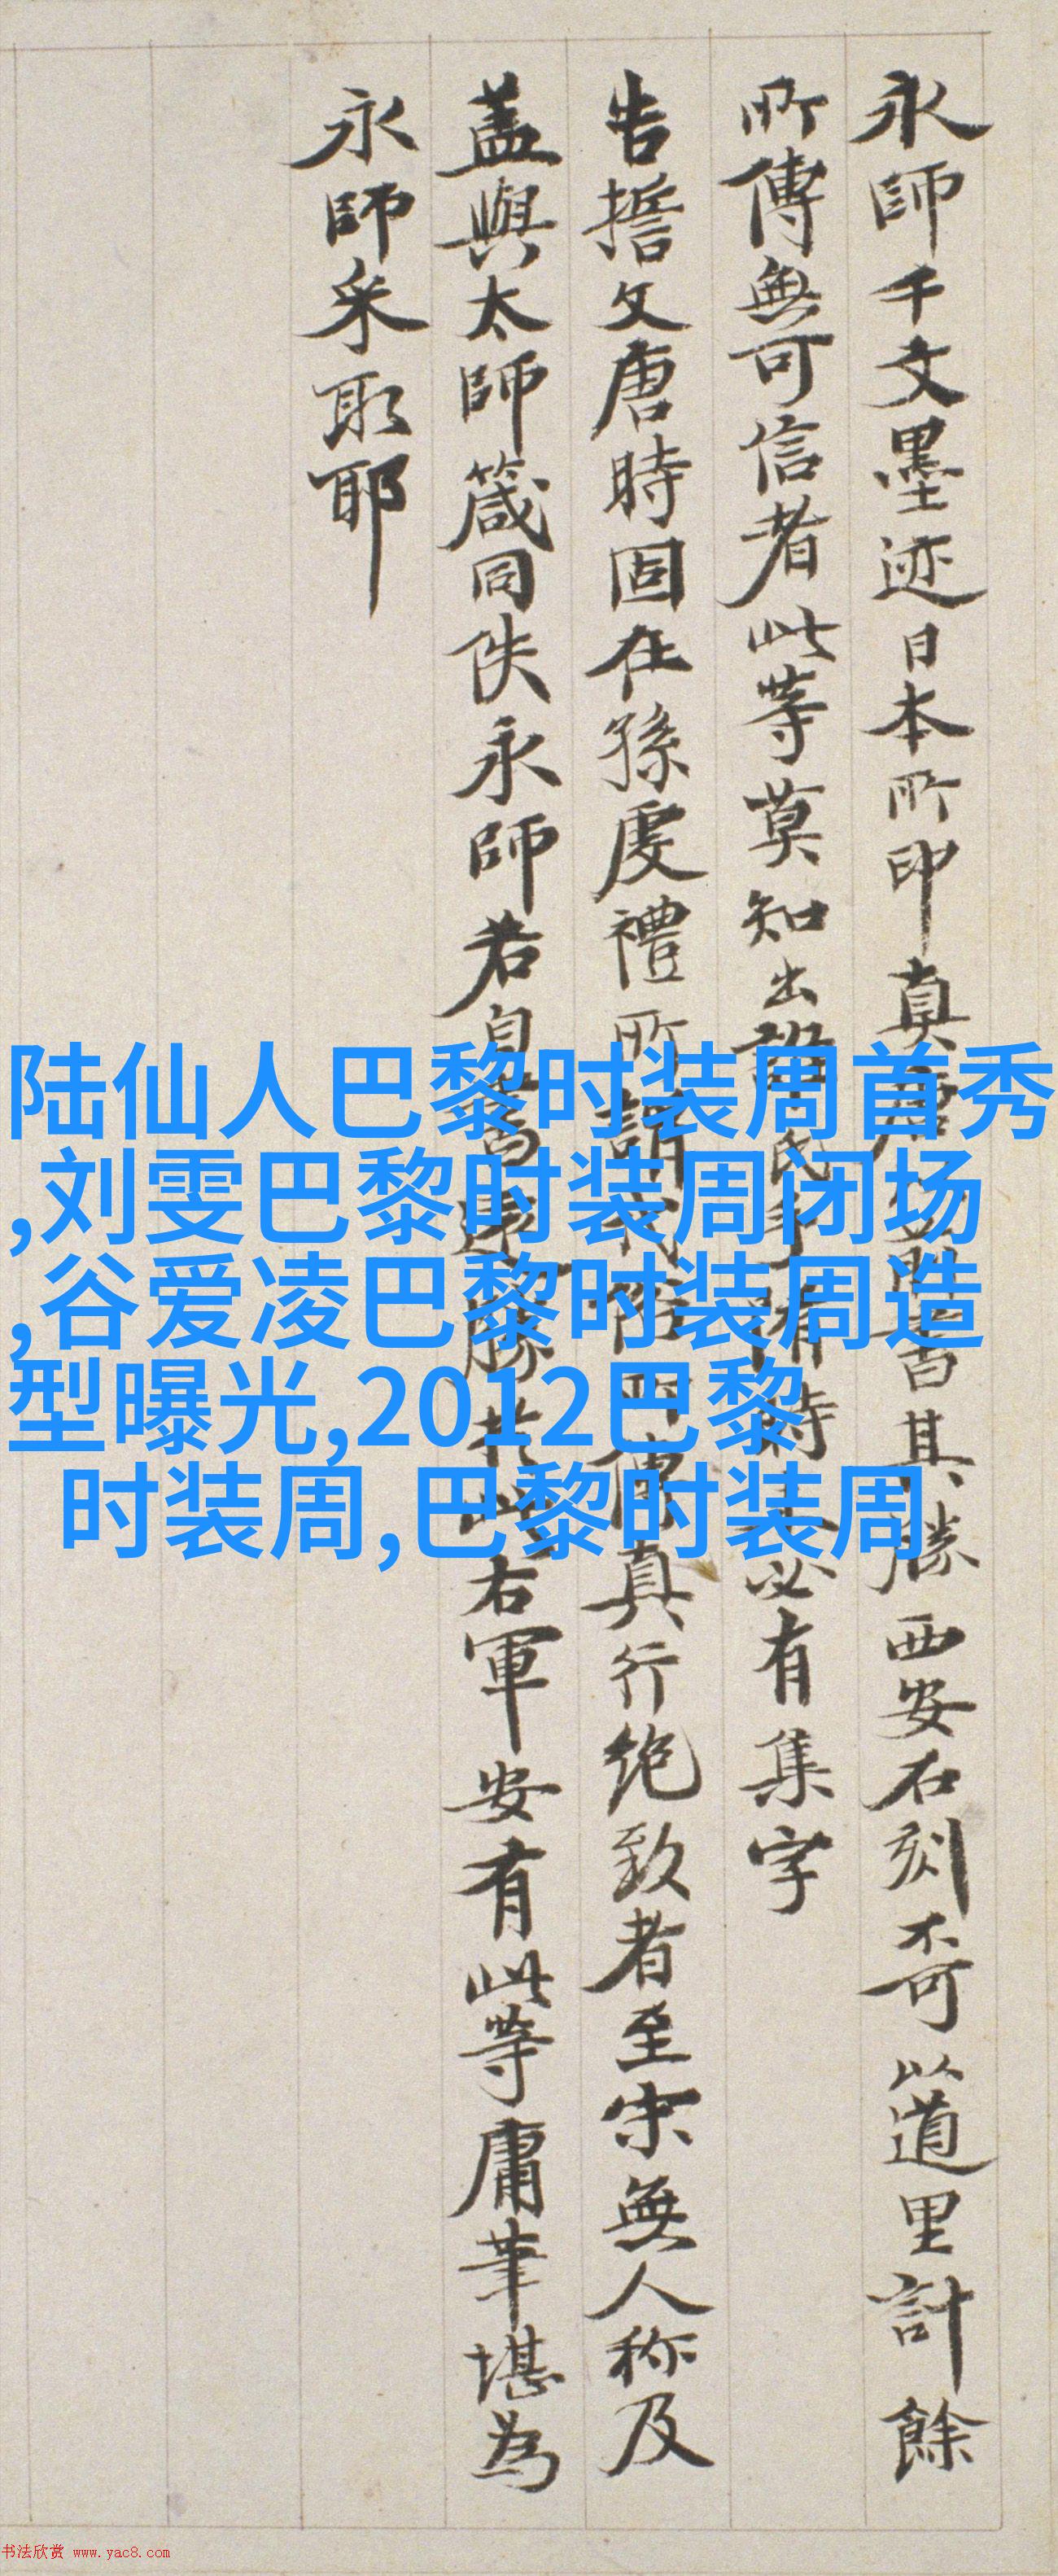 永師千文墨迹日本所印真書其勝西安石刻不可以道里計餘
所傳無可信者此等莫知出誰氏手時必有集字
告誓文唐時固在孫虔禮所真行絶致者至宋無人称及
蓋與太師箴同佚永師若自勝右軍安有此等庸筆堪為
永師采取耶
陆仙人巴黎时装周首秀
,刘雯巴黎时装周闭场
,谷爱凌巴黎时装周造
型曝光,2012巴黎
时装周,巴黎时装周
书法欣赏 www.yac8.com